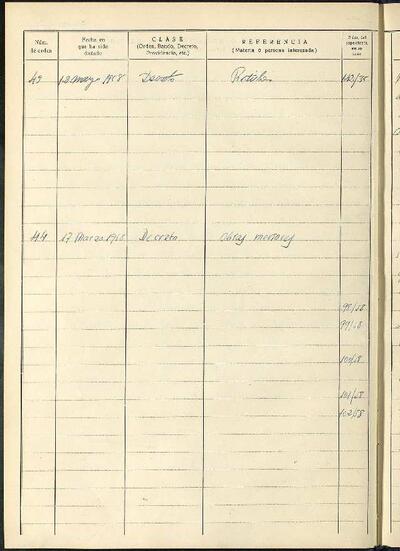 Núm.
de orden
Fecha en
que ha sido
dictado
CLASE
(Orden, Bando, Decreto,
Providencia, etc.)
REFERENCIA
(Materia o persona interesada)
Núm. del
expediente
en su
caso
43 12 mayo 1958 Decreto
44 17 Marzo 1958 Decreto Obras menores
98/58
99/58
100/58
101/58
102/58